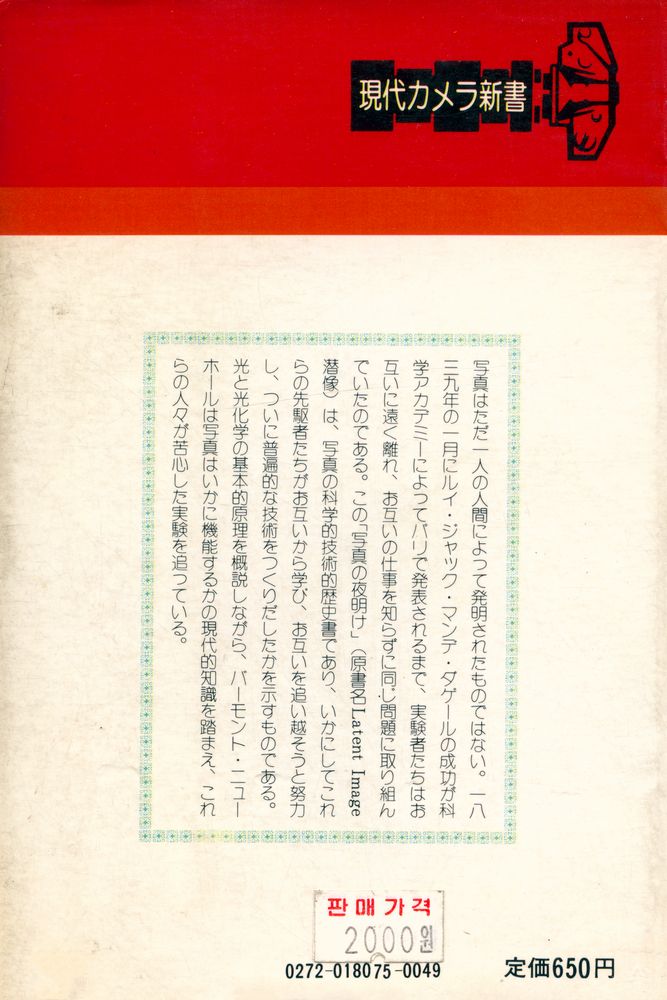 現代カメラ新書
写真はただ一人の人間によって発明されたものではない。一八
三九年の一月にルイ・ジャック・マンデ・ダゲールの成功が科
学アカデミーによってパリで発表されるまで、実験者たちはお
互いに遠く離れ、お互いの仕事を知らずに同じ問題に取り組ん
でいたのである。この「写真の夜明け」（原書名Latent Image
潜像）は、写真の科学的技術的歴史書であり、いかにしてこれ
らの先駆者たちがお互いから学び、お互いを追い越そうと努力
し、ついに普遍的な技術をつくりだしたかを示すものである。
光と光化学の基本的原理を概説しながら、バーモント・ニュー
ホールは写真はいかに機能するかの現代的知識を踏まえ、これ
らの人々が苦心した実験を追っている。
판매가격
2000원
0272-018075-0049
定価650円